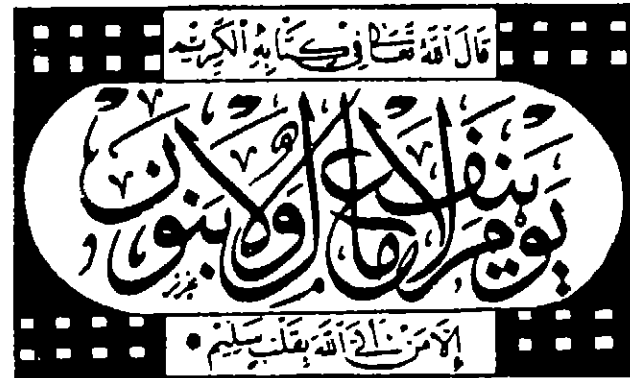 قَالَ اللَّهُ تَعَالَى فِي كِتَابِهِ الْكَرِيمِ
يَوْمَ لَا يَنْفَعُ مَالٌ وَلَا بَنُونَ
إِلَّا مَنْ أَتَى اللَّهَ بِقَلْبٍ سَلِيمٍ